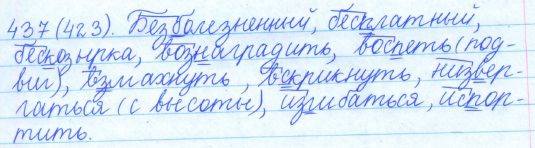 437 (423). Безболезненный, бесплатный,
бескозырка, вознаградить, воспеть (под-
виг), взмахнуть, вскрикнуть, низвер-
гаться (с высоты), изгибаться, испор-
тить.